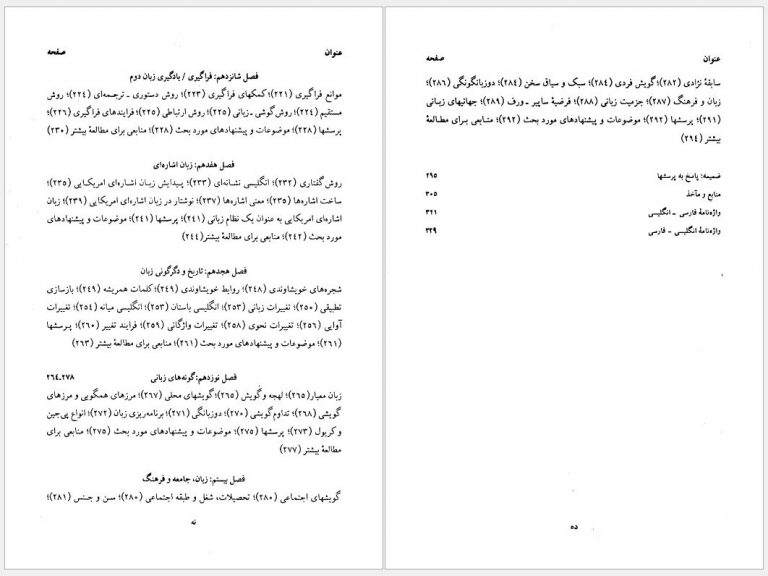 عنوان صفحه
فصل شانزدهم: فراگیری / یادگیری زبان دوم
موانع فراگیری (۲۲۱)؛ کمکهای فراگیری (۲۲۳)؛ روش دستوری ـ ترجمه‌ای (۲۲۴)؛ روش
مستقیم (۲۲۴)؛ روش گوشی ـ زبانی (۲۲۵)؛ روش ارتباطی (۲۲۵)؛ فرایندهای فراگیری (۲۲۶)؛
پرسشها (۲۲۸)؛ موضوعات و پیشنهادهای مورد بحث (۲۲۸)؛ منابعی برای مطالعهٔ بیشتر (۲۳۰)
فصل هفدهم: زبان اشاره‌ای
روش گفتاری (۲۳۲)؛ انگلیسی نشانه‌ای (۲۳۳)؛ پیدایش زبان اشاره‌ای امریکایی (۲۳۵)؛
ساخت اشاره‌ها (۲۳۵)؛ معنی اشاره‌ها (۲۳۷)؛ نوشتار در زبان اشاره‌ای امریکایی (۲۳۹)؛ زبان
اشاره‌ای امریکایی به عنوان یک نظام زبانی (۲۴۱)؛ پرسشها (۲۴۱)؛ موضوعات و پیشنهادهای
مورد بحث (۲۴۲)؛ منابعی برای مطالعهٔ بیشتر(۲۴۴)
فصل هجدهم: تاریخ و دگرگونی زبان
شجره‌های خویشاوندی (۲۴۸)؛ روابط خویشاوندی (۲۴۹)؛ کلمات همریشه (۲۴۹)؛ بازسازی
تطبیقی (۲۵۰)؛ تغییرات زبانی (۲۵۳)؛ انگلیسی باستان (۲۵۳)؛ انگلیسی میانه (۲۵۴)؛ تغییرات
آوایی (۲۵۶)؛ تغییرات نحوی (۲۵۸)؛ تغییرات واژگانی (۲۵۹)؛ فرایند تغییر (۲۶۰)؛ پرسشها
(۲۶۱)؛ موضوعات و پیشنهادهای مورد بحث (۲۶۱)؛ منابعی برای مطالعه بیشتر (۲۶۳)
فصل نوزدهم: گونه‌های زبانی ۲۷۸ـ۲۶۴
زبان معیار(۲۶۵)؛ لهجه و گویش (۲۶۵)؛ گویشهای محلی (۲۶۷)؛ مرزهای همگویی و مرزهای
گویشی (۲۶۸)؛ تداوم گویشی (۲۷۰)؛ دوزبانگی (۲۷۱)؛ برنامه‌ریزی زبان (۲۷۲)؛ انواع پی‌جین
و کریول (۲۷۳)؛ پرسشها (۲۷۵)؛ موضوعات و پیشنهادهای مورد بحث (۲۷۵)؛ منابعی برای
مطالعهٔ بیشتر (۲۷۷)
فصل بیستم: زبان، جامعه و فرهنگ
گویشهای اجتماعی (۲۸۰)؛ تحصیلات، شغل و طبقه اجتماعی (۲۸۰)؛ سن و جنس (۲۸۱)؛
نه
عنوان صفحه
سابقهٔ نژادی (۲۸۲)؛ گویش فردی (۲۸۴)؛ سبک و سیاق سخن (۲۸۴)؛ دوزبانگونگی (۲۸۶)؛
زبان و فرهنگ (۲۸۷)؛ جزمیت زبانی (۲۸۸)؛ فرضیهٔ ساپیر ـ ورف (۲۸۹)؛ جهانیهای زبانی
(۲۹۱)؛ پرسشها (۲۹۲)؛ موضوعات و پیشنهادهای مورد بحث (۲۹۲)؛ منابعی برای مطالعهٔ
بیشتر (۲۹۴)
ضمیمه: پاسخ به پرسشها ۲۹۵
منابع و مآخذ ۳۰۵
واژه‌نامهٔ فارسی ـ انگلیسی ۳۲۱
واژه‌نامهٔ انگلیسی ـ فارسی ۳۲۹
ده